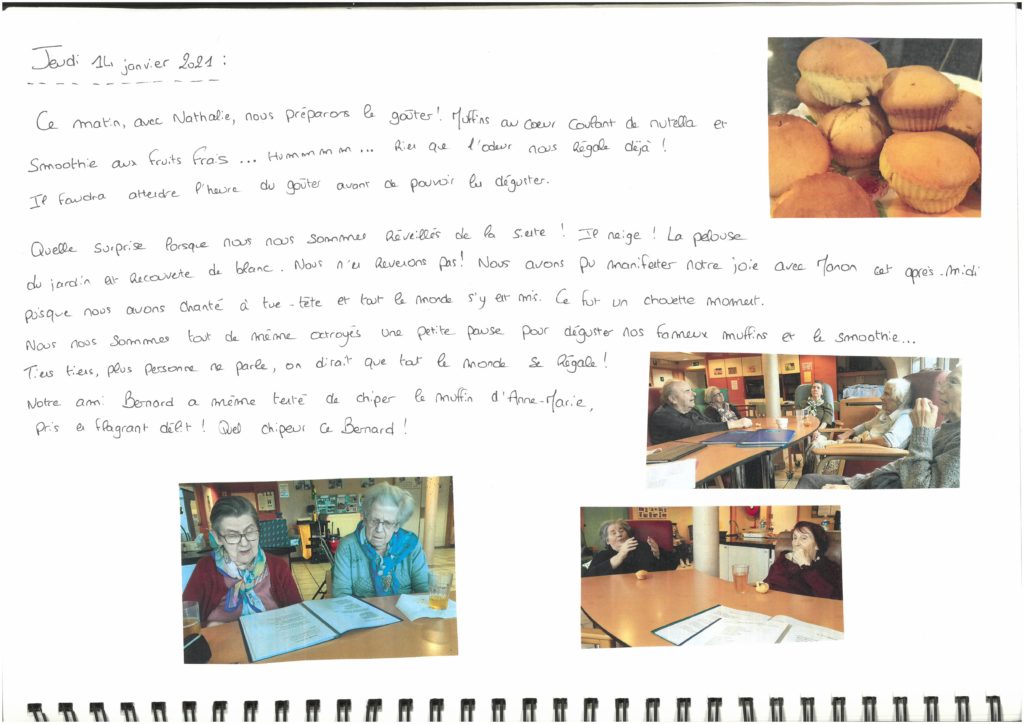 Jeudi 14 janvier 2021 :
Ce matin, avec Nathalie, nous préparons le goûter ! Muffins au coeur coulant de nutella et
Smoothie aux fruits frais ... Hummmmm ... Rien que l'odeur nous régale déjà !
Il faudra attendre l'heure du goûter avant de pouvoir les déguster.
Quelle surprise lorsque nous nous sommes réveillés de la sieste ! Il neige ! La pelouse
du jardin est recouverte de blanc. Nous n'en revenons pas ! Nous avons pu manifester notre joie avec Manon cet après-midi
puisque nous avons chanté à tue-tête et tout le monde s'y est mis. Ce fut un chouette moment.
Nous nous sommes tout de même octroyés une petite pause pour déguster nos fameux muffins et le smoothie...
Tiens tiens, plus personne ne parle, on dirait que tout le monde se régale !
Notre ami Bernard a même tenté de chiper le muffin d'Anne-Marie,
pris en flagrant délit ! Quel chipeur ce Bernard !